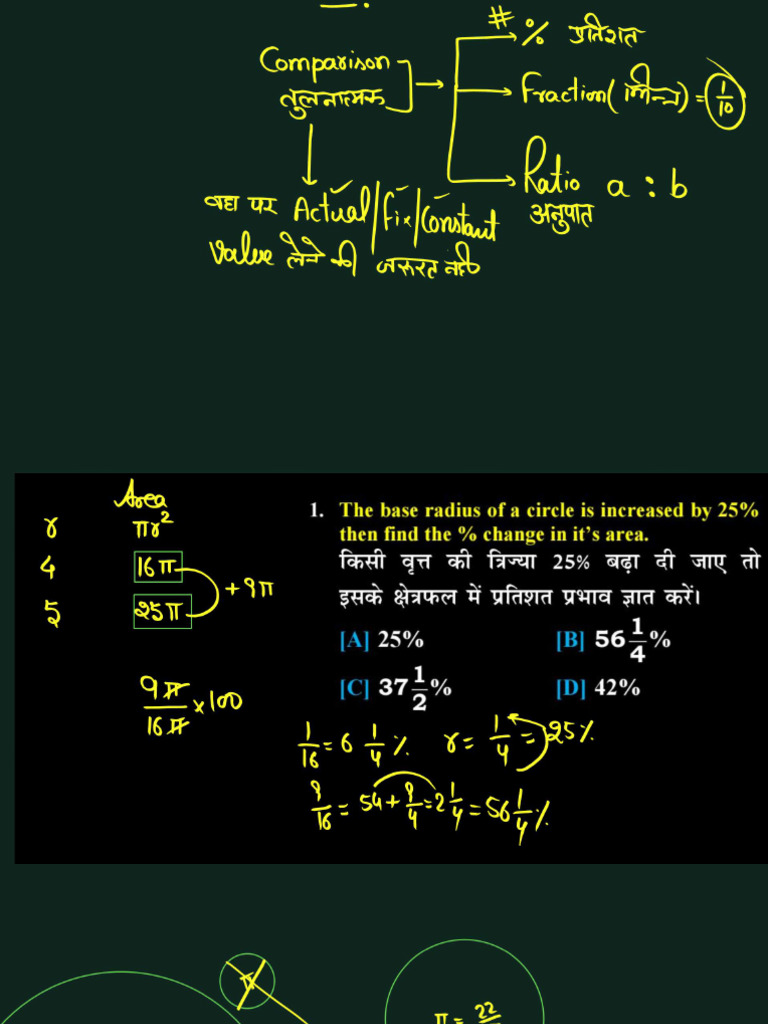 # % प्रतिशत
Comparison
तुलनात्मक
Fraction (भिन्न) = 1/10
Ratio a : b
अनुपात
वहा पर Actual/Fix/Constant
Value लेने की जरूरत नही
Area
r πr²
4 16π
5 25π
+9π
9π/16π × 100
1. The base radius of a circle is increased by 25%
then find the % change in it's area.
किसी वृत्त की त्रिज्या 25% बढ़ा दी जाए तो
इसके क्षेत्रफल में प्रतिशत प्रभाव ज्ञात करें।
[A] 25% [B] 56 1/4 %
[C] 37 1/2 % [D] 42%
1/16 = 6 1/4 % r = 1/4 = 25%
9/16 = 54 + 9/4 = 2 1/4 = 56 1/4 %
π
π = 22